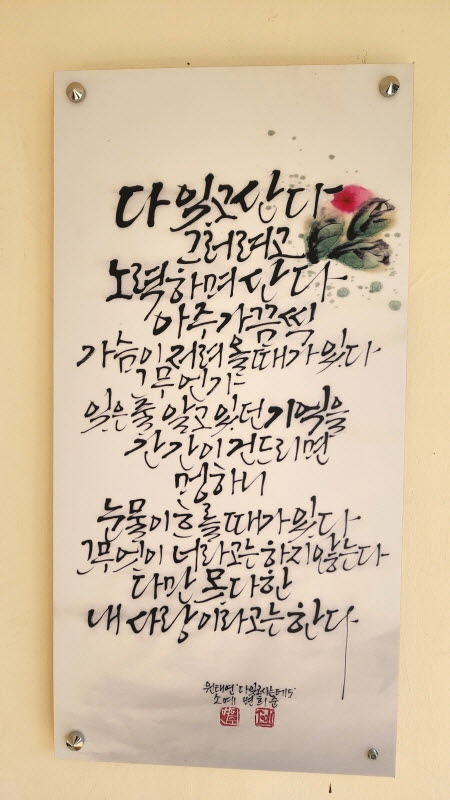 다 잊고 산다
그러려고
노력하며 산다
아주 가끔씩
가슴이 저려올 때가 있다
그 무언가
잊은 줄 알고 있던 기억을
간간이 건드리면
멍하니
눈물이 흐를 때가 있다
그 무엇이 너라고는 하지 않는다
다만 못다한
내 사랑이라고는 한다
원태연 '다 잊고 사는데도'
소예 변희순